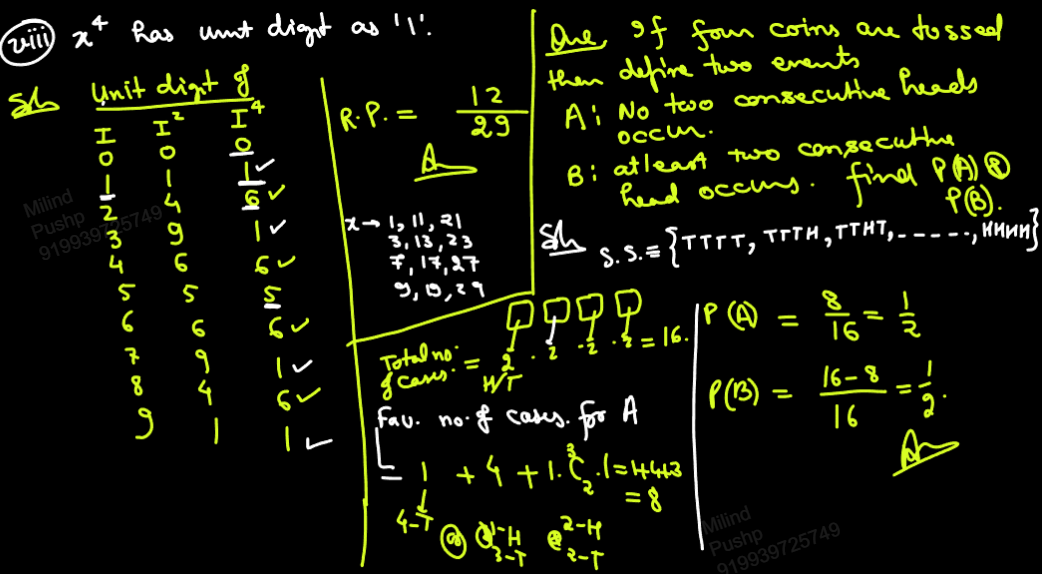 viii) x⁴ has unit digit as '1'.
Sln Unit digit of
I I² I⁴
0 0 0
1 1 1 ✓
2 4 6 ✓
3 9 1 ✓
4 6 6 ✓
5 5 5
6 6 6 ✓
7 9 1 ✓
8 4 6 ✓
9 1 1 ✓
R.P. = 12/29
A
x → 1, 11, 21
3, 13, 23
7, 17, 27
9, 19, 29
Que. If four coins are tossed
then define two events
A: No two consecutive heads
occur.
B: atleast two consecutive
head occurs. find P(A) &
P(B).
Sln S.S. ≡ {TTTT, TTTH, TTHT, ------, HHHH}
Total no.
of cases. = 2 · 2 · 2 · 2 = 16.
H/T
Fav. no. of cases. for A
= 1 + 4 + 1. ³C₂ .1 = 1+4+3
= 8
4-T or 1-H 3-T or 2-H 2-T
P(A) = 8/16 = 1/2
P(B) = 16-8/16 = 1/2.
A
Milind
Pushp
919939725749
Milind
Pushp
919939725749